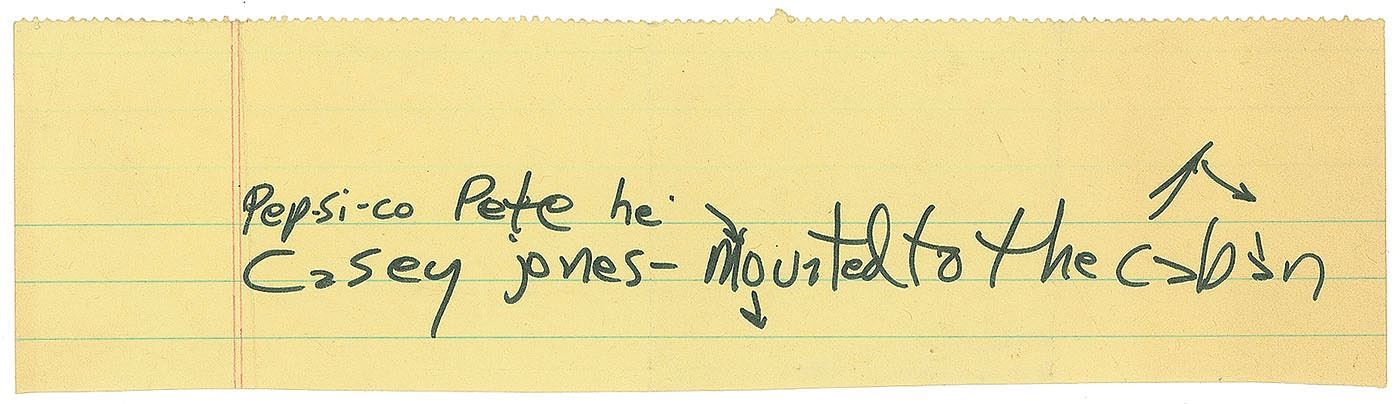 Pep-si-co Pete he
Casey jones- Mounted to the cabin